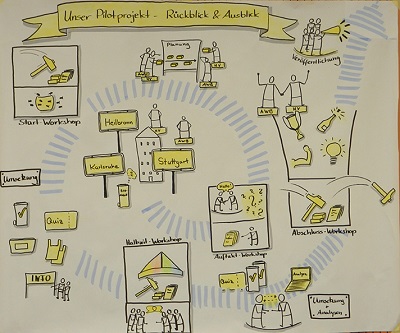 Unser Pilotprojekt - Rückblick & Ausblick
Planung
AWB
AWB
Veröffentlichung
Start-Workshop
Heilbronn
Karlsruhe
Stuttgart
AWB
AWB
HV
Umsetzung
Quiz
INFO
Halbzeit-Workshop
Hallo
Auftakt-Workshop
Abschluss-Workshop
Quiz
Analyse
Umsetzung
+
Analysen